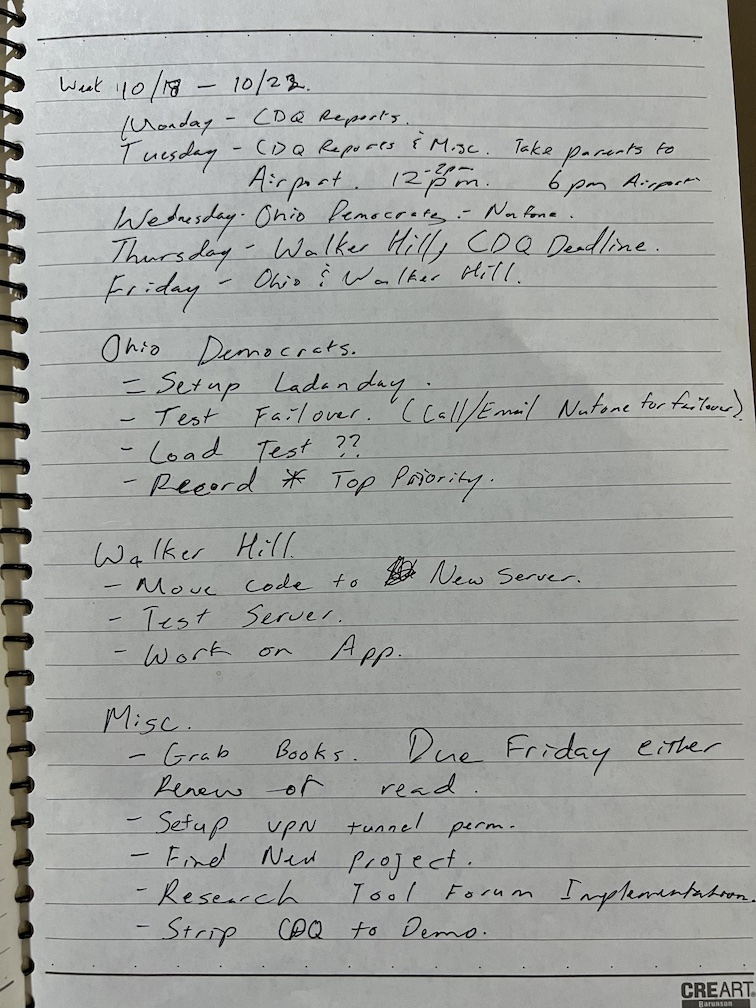 Week 10/18 – 10/22.
Monday – CDQ Reports.
Tuesday – CDQ Reports & Misc. Take parents to
Airport. 12 -2pm pm. 6pm Airport
Wednesday - Ohio Democrats - Nufone.
Thursday – Walker Hill, CDQ Deadline.
Friday – Ohio & Walker Hill.
Ohio Democrats.
– Setup
– Test Failover. (Call/Email Nufone for failover).
– Load Test ??
– Record * Top Priority.
Walker Hill
– Move code to New Server.
– Test Server.
– Work on App.
Misc.
– Grab Books. Due Friday either
Renew or read.
– Setup VPN tunnel perm.
– Find New project.
– Research Tool Forum Implementation.
– Strip CDQ to Demo.
CREART
Barunson